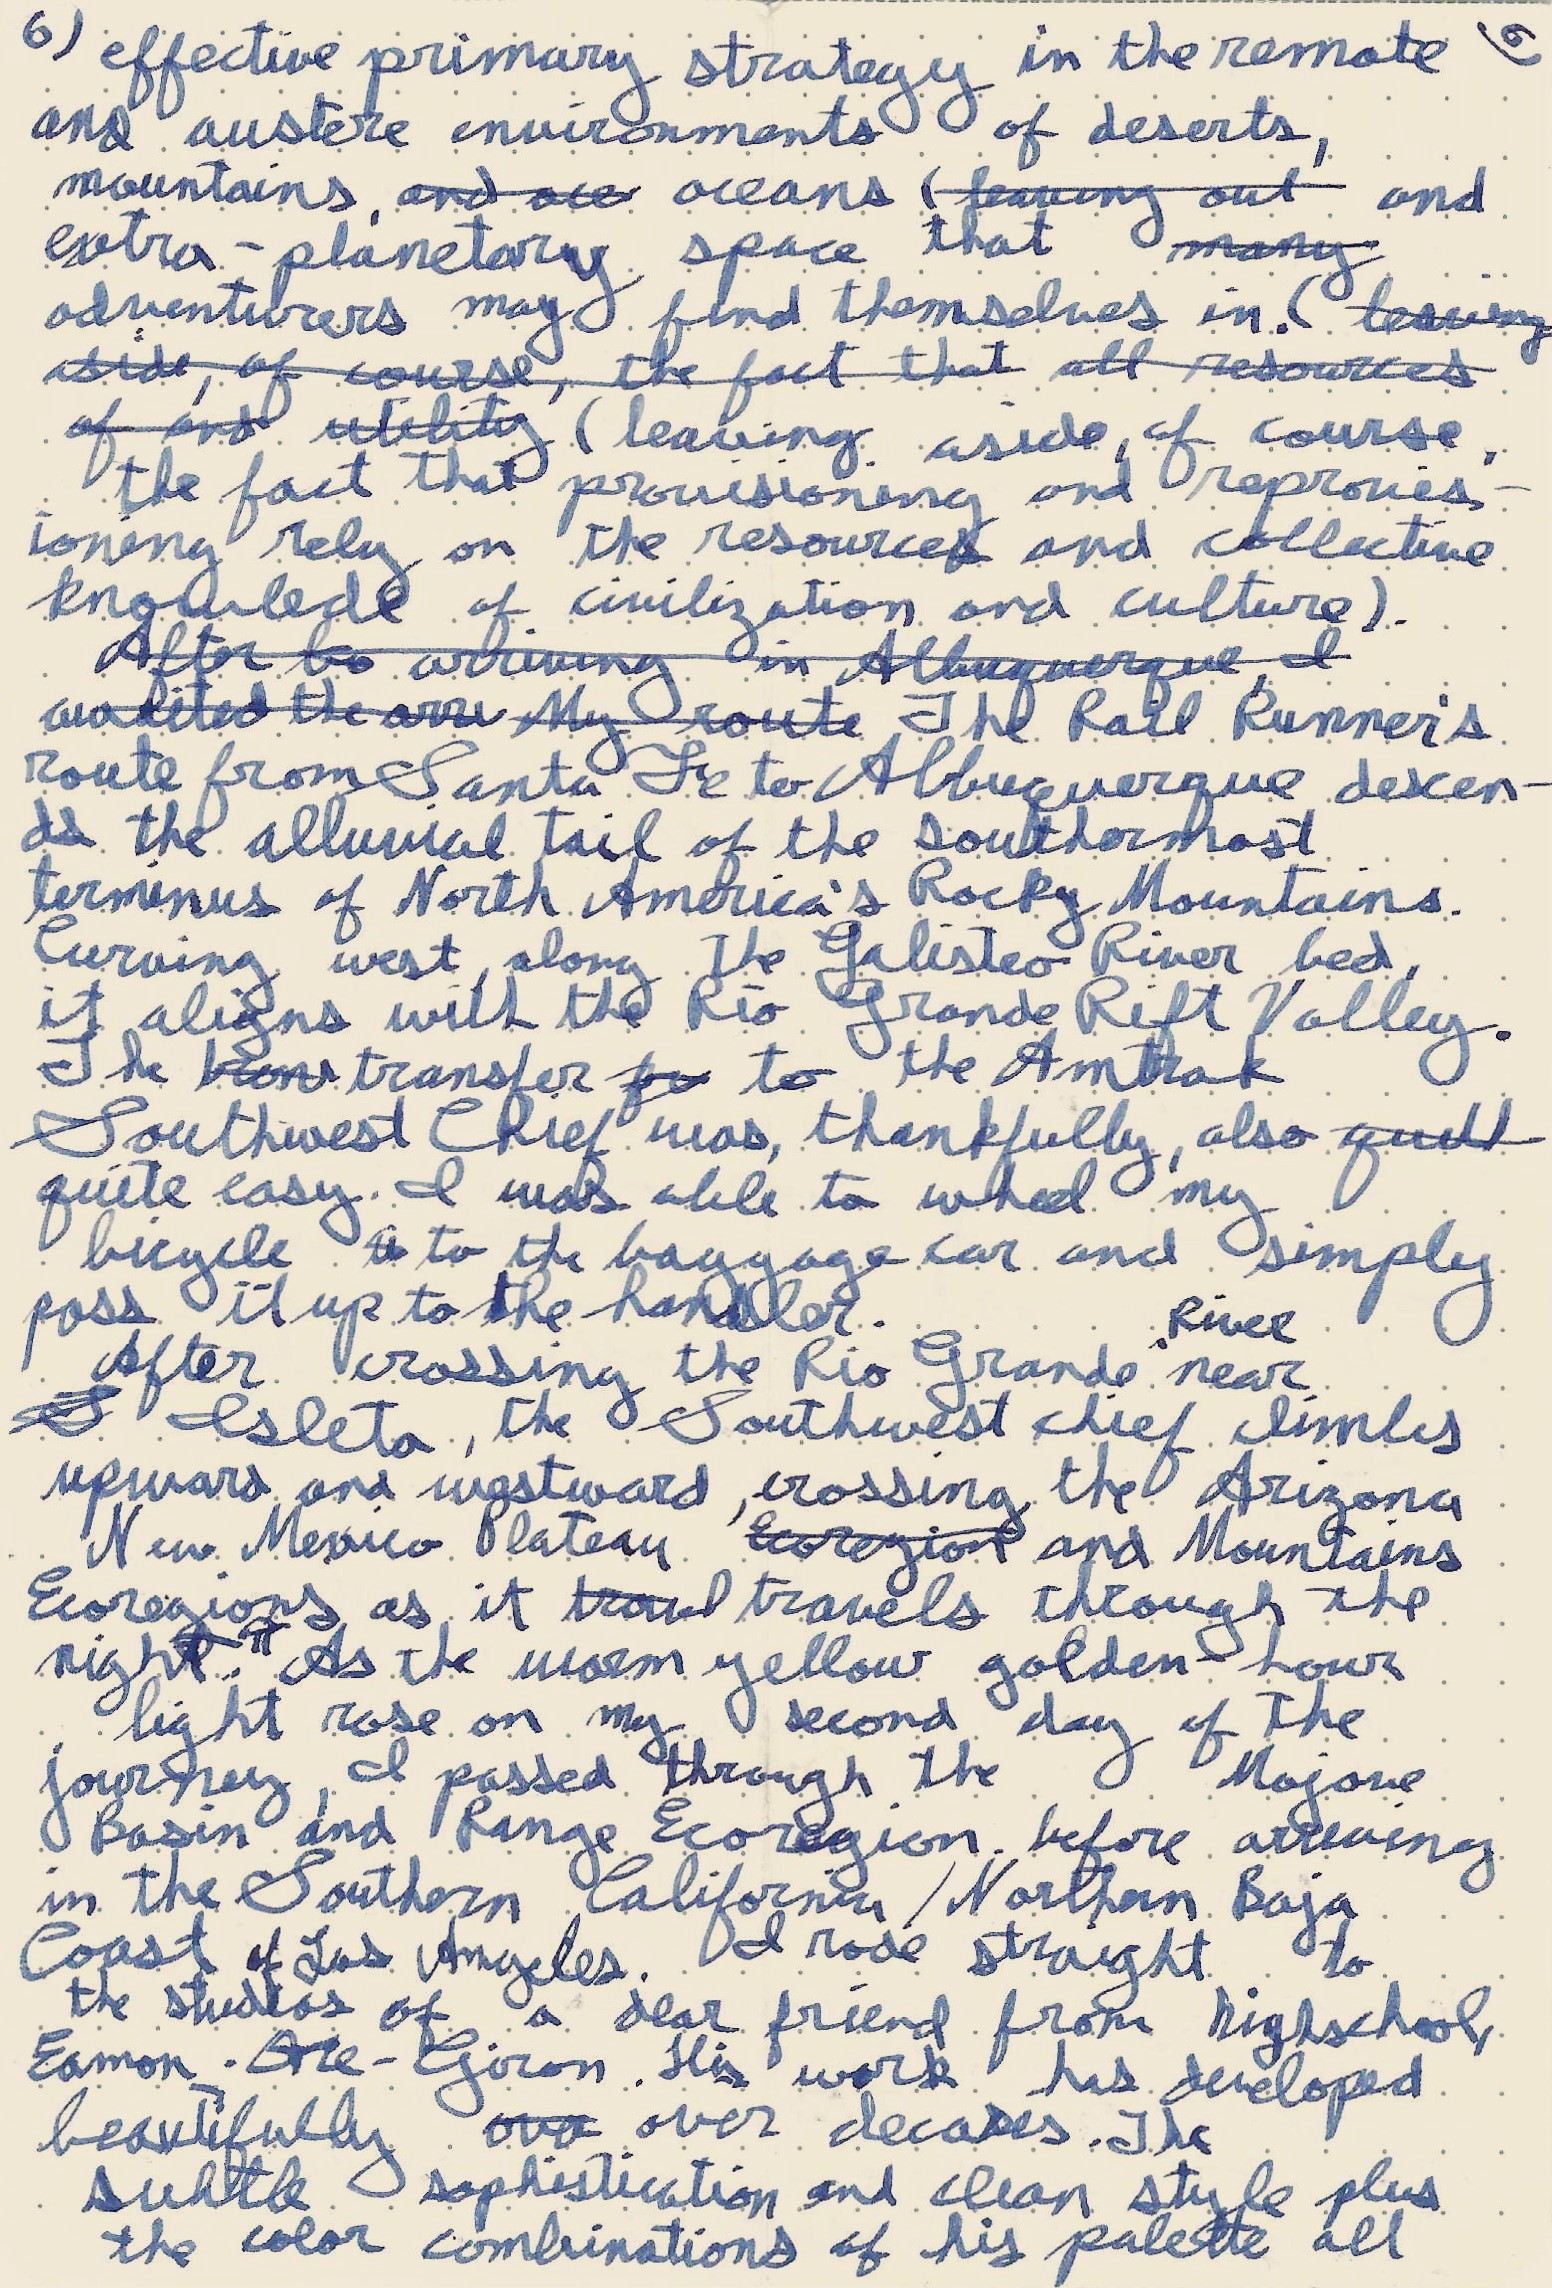 6) effective primary strategy in the remote (6
and austere environments of deserts,
mountains, and oce oceans (leaving out and
extra-planetary space that many
adventurers may find themselves in. (leaving
aside, of course, the fact that all resources
of and utility (leaving aside, of course,
the fact that provisioning and reprovis-
ioning rely on the resources and collective
knowlede of civilization and culture).
After bo arriving in Albuquerque, I
awaited the arri My route The Rail Runner's
route from Santa Fe to Albuquerque descen-
ds the alluvial tail of the southermost
terminus of North America's Rocky Mountains.
Curving west, along the Galisteo River bed,
it aligns with the Rio Grande Rift Valley.
The trans transfer fo to the Amtrak
Southwest Chief was, thankfully, also quell
quite easy. I was able to wheel my
bicycle to the baggage car and simply
pass it up to the handler.
River
After crossing the Rio Grande near
S Isleta, the Southwest Chief climbs
upward and westward, crossing the Arizona
New Mexico Plateau Ecoregion and Mountains
Ecoregions as it travel travels through the
night. As the warm yellow golden-hour
light rose on my second day of the
journey, I passed through the Mojove
Basin and Range Ecoregion before arriving
in the Southern California/Northern Baja
Coast of Los Angeles. I rode straight to
the studios of a dear friend from highschool,
Eamon Ore-Giron. His work has developed
beautifully ove over decades. The
subtle sophistication and clean style plus
the color combinations of his palette all